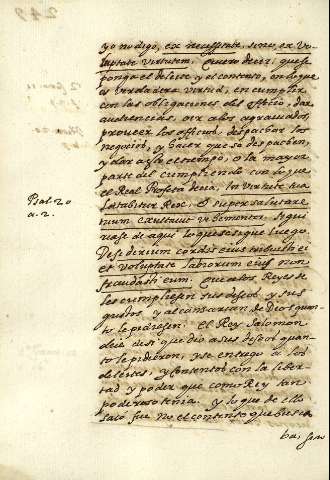 yo no digo, ex necessitate, sino, ex vo-
luptate virtutem. Quiero decir, que se
ponga el deleite y el contento, en lo que
es verdadera virtud, en cumplir
con las obligaciones del officio, dar
audiencias, oir a los agraviados,
proveer los officios, despachar los
negocios, y hacer que se despachen,
y dar a esto el tiempo, o la mayor
parte del cumpliendo con lo que
el Real Profeta decia, In virtute tua
Psal. 20
a. 2.
lætabitur Rex, & super salutare
tuum exultavit vehementer. Segui
riase de aqui lo que se sigue luego.
Desiderium cordis eius tribuisti ei
et voluptate labiorum eius non
fraudasti eum. Que a los Reyes se
les cumpliesen sus deseos y sus
gustos, y alcansarian de Dios quan-
to le pidiesen. El Rey Salomon
dice de si que dio a sus deseos quan-
to le pidieron, y se entrego a los
deleites, y contentos con la liber-
tad y poder que como Rey tan
poderoso tenia. y lo que de ello
saco fue no el contento que busca
ba, sino